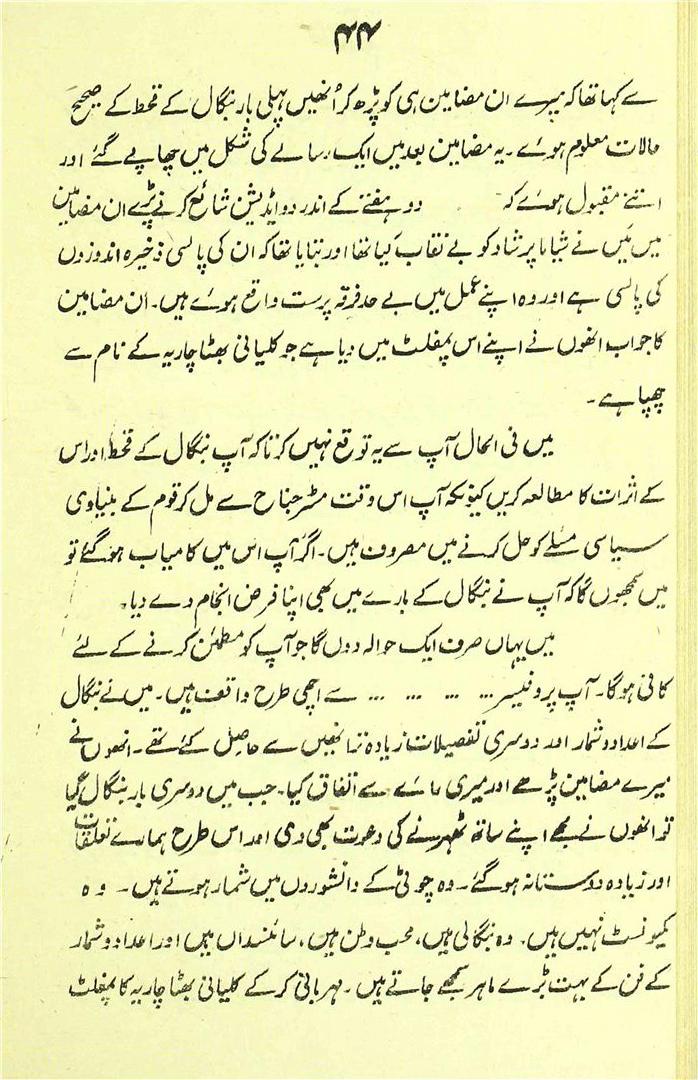 ۴۴
سے کہا تھا کہ میرے ان مضامین ہی کو پڑھ کر اُنھیں پہلی بار بنگال کے قحط کے صحیح
حالات معلوم ہوئے۔ یہ مضامین بعد میں ایک رسالے کی شکل میں چھاپے گئے اور
اتنے مقبول ہوئے کہ دو ہفتے کے اندر دو ایڈیشن شائع کرنے پڑے ان مضامین
میں مَیں نے شیاما پرشاد کو بے نقاب کیا تھا اور بتایا تھا کہ ان کی پالسی ذخیرہ اندوزوں
کی پالسی ہے اور وہ اپنے عمل میں بے حد فرقہ پرست واقع ہوئے ہیں۔ ان مضامین
کا جواب انھوں نے اپنے اس پمفلٹ میں دیا ہے جو کلیانی بھٹا چاریہ کے نام سے
چھپا ہے۔
میں فی الحال آپ سے یہ توقع نہیں کرتا کہ آپ بنگال کے قحط اور اس
کے اثرات کا مطالعہ کریں کیونکہ آپ اس وقت مسٹر جناح سے مل کر قوم کے بنیادی
سیاسی مسئلے کو حل کرنے میں مصروف ہیں۔ اگر آپ اس میں کامیاب ہو گئے تو
میں سمجھوں گا کہ آپ نے بنگال کے بارے میں بھی اپنا فرض انجام دے دیا۔
میں یہاں صرف ایک حوالہ دوں گا جو آپ کو مطمئن کرنے کے لئے
کافی ہوگا۔ آپ پروفیسر ... ... ... ... سے اچھی طرح واقف ہیں۔ میں نے بنگال
کے اعداد و شمار اور دوسری تفصیلات زیادہ تر انھیں سے حاصل کئے تھے۔ انھوں نے
میرے مضامین پڑھے اور میری رائے سے اتفاق کیا۔ جب میں دوسری بار بنگال گیا
تو انھوں نے مجھے اپنے ساتھ ٹھہرنے کی دعوت بھی دی اور اس طرح ہمارے تعلقات
اور زیادہ دوستانہ ہو گئے۔ وہ چوٹی کے دانشوروں میں شمار ہوتے ہیں۔ وہ
کمیونسٹ نہیں ہیں۔ وہ بنگالی ہیں، محب وطن ہیں، سائنسداں ہیں اور اعداد و شمار
کے فن کے بہت بڑے ماہر سمجھے جاتے ہیں۔ مہربانی کر کے کلیانی بھٹا چاریہ کا پمفلٹ